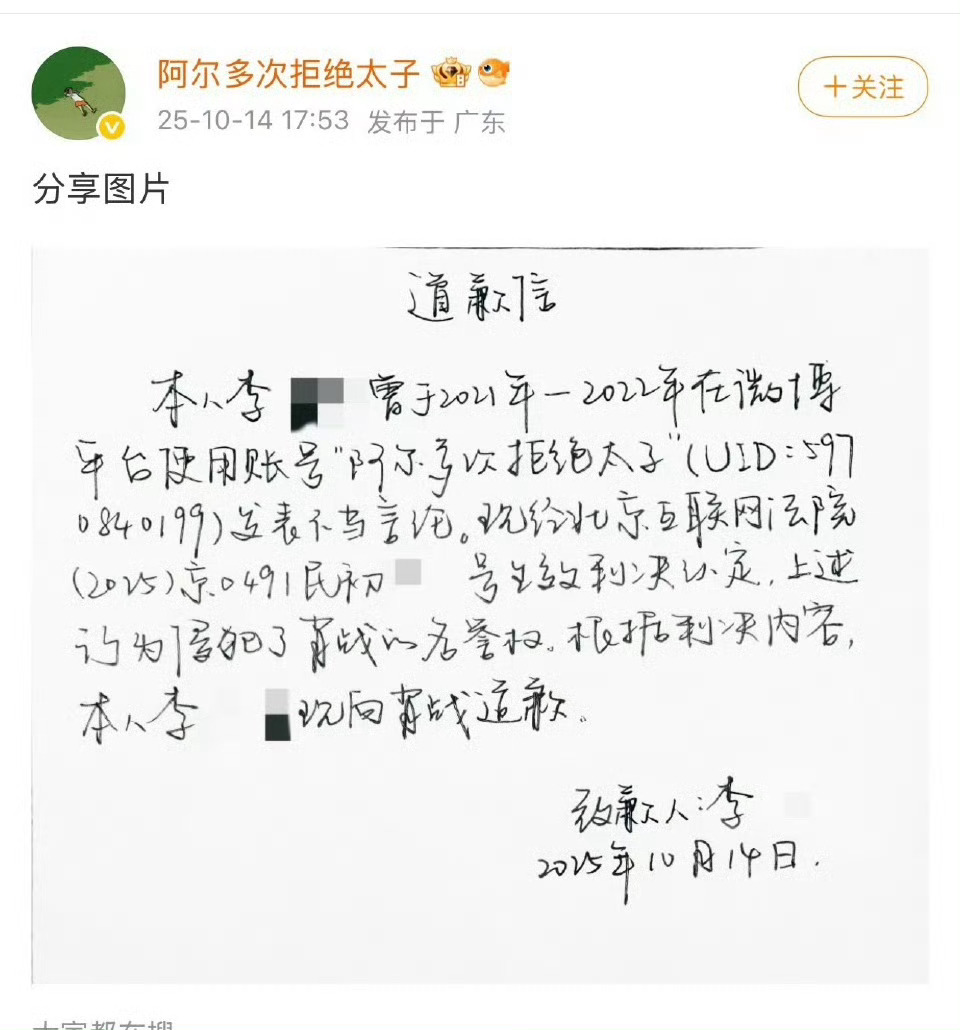 阿尔多次拒绝太子
+关注
25-10-14 17:53 发布于 广东
分享图片
道歉信
本人李 曾于2021年—2022年在微博
平台使用账号"阿尔多次拒绝太子"(UID:597
0840199)发表不当言论。现经北京互联网法院
(2025)京0491民初 号生效判决认定,上述
行为侵犯了肖战的名誉权。根据判决内容,
本人李 现向肖战道歉。
致歉人:李
2025年10月14日.
大家都在搜